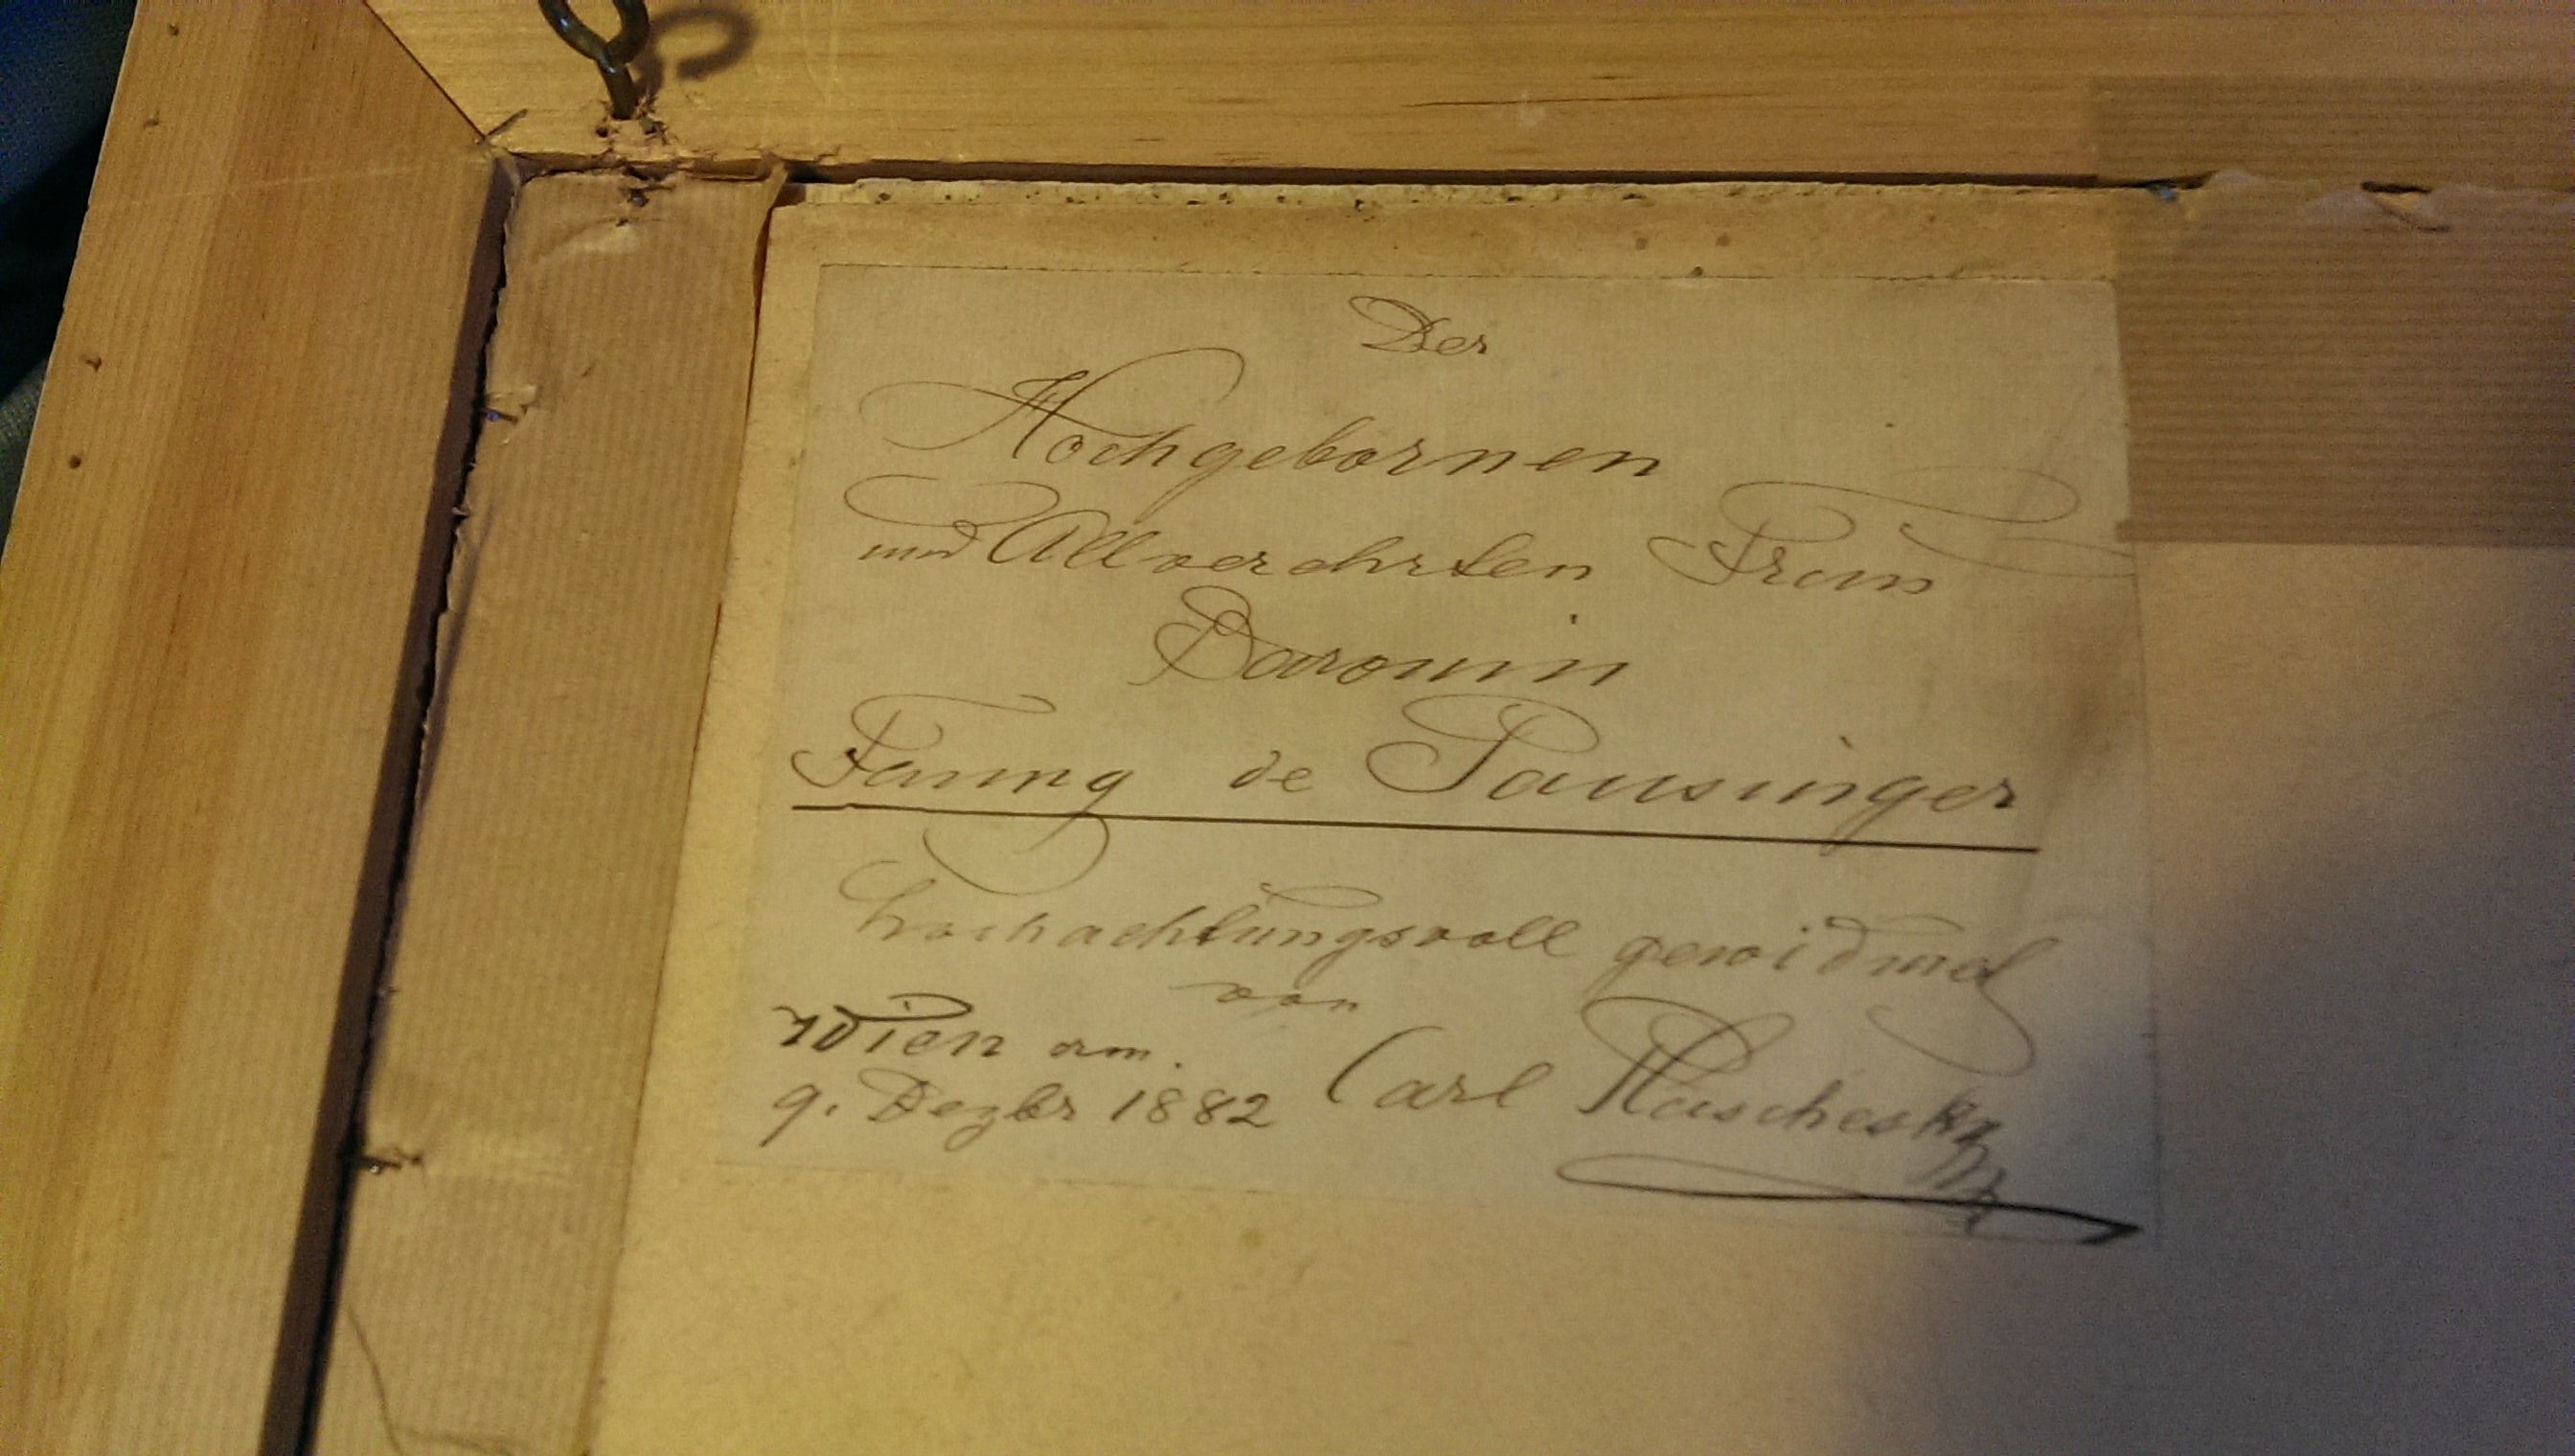 Der
Hochgebornen
und Allverehrten Frau
Baronin
Fanny de Pausinger
hochachtungsvoll gewidmet
von
Wien am.
9. Dezbr 1882 Carl